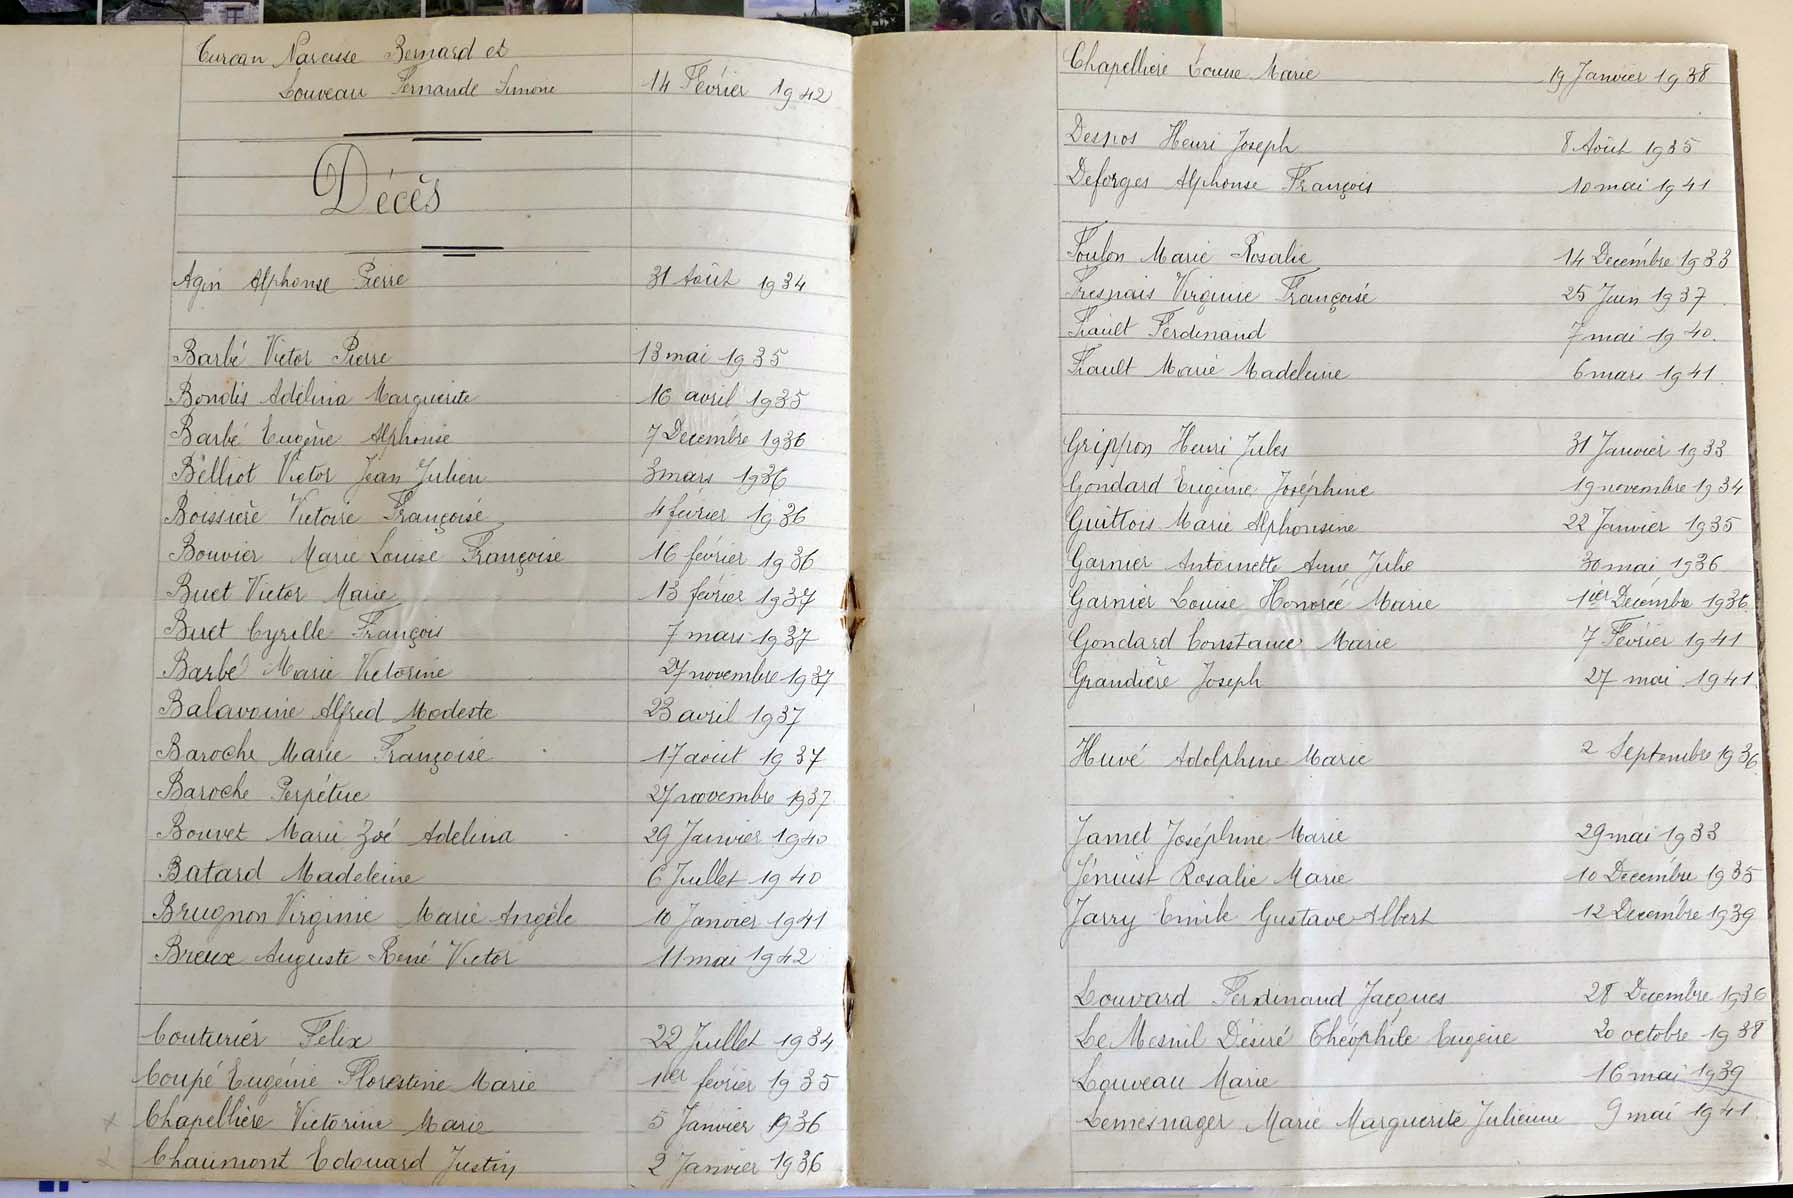 Turcan Narcisse Bernard et
Louveau Fernande Simone 14 Février 1942
Décès
Agin Alphonse Pierre 31 Août 1934
Barbé Victor Pierre 13 mai 1935
Bondis Adélina Marguerite 16 avril 1935
Barbé Eugène Alphonse 7 Décembre 1936
Bélliot Victor Jean Julien 3 mars 1936
Boissière Victoire Françoise 4 février 1936
Bouvier Marie Louise Françoise 16 février 1936
Buet Victor Marie 13 février 1937
Buet Cyrille François 7 mars 1937
Barbé Marie Victorine 27 novembre 1937
Balavoine Alfred Modeste 23 avril 1937
Baroche Marie Françoise 17 août 1937
Baroche Perpétue 27 novembre 1937
Bouvet Marie Zoé Adelina 29 Janvier 1940
Batard Madeleine 6 Juillet 1940
Brugnon Virginie Marie Angèle 10 Janvier 1941
Breux Auguste René Victor 11 mai 1942
Couturier Felix 22 Juillet 1934
Coupé Eugénie Florestine Marie 1er février 1935
Chapellière Victorine Marie 5 Janvier 1936
Chaumont Edouard Justin 2 Janvier 1936
Chapelliere Louise Marie 19 Janvier 1938
Despos Henri Joseph 8 Août 1935
Deforges Alphonse François 10 mai 1941
Foulon Marie Rosalie 14 Décémbre 1933
Fresnais Virginie Françoise 25 Juin 1937
Frault Ferdinand 7 mai 1940.
Frault Marie Madeleine 6 mars 1941.
Grippon Henri Jules 31 Janvier 1933
Gondard Eugénie Joséphine 19 novembre 1934
Guittois Marie Alphonsine 22 Janvier 1935
Garnier Antoinette Anne Julie 30 mai 1936
Garnier Louise Honorée Marie 1ier Décémbre 1936
Gondard Constance Marie 7 Février 1941
Grandière Joseph 27 mai 1941.
Huvé Adolphine Marie 2 Septembre 1936
Jamet Joséphine Marie 29 mai 1933
Jénuist Rosalie Marie 10 Décémbre 1935
Jarry Emile Gustave Albert 12 Décémbre 1939
Louvard Ferdinand Jacques 28 Décembre 1936
Le Mesnil Désiré Théophile Eugène 20 octobre 1938
Louveau Marie 16 mai 1939
Lemesnager Marie Marguerite Julienne 9 mai 1941.